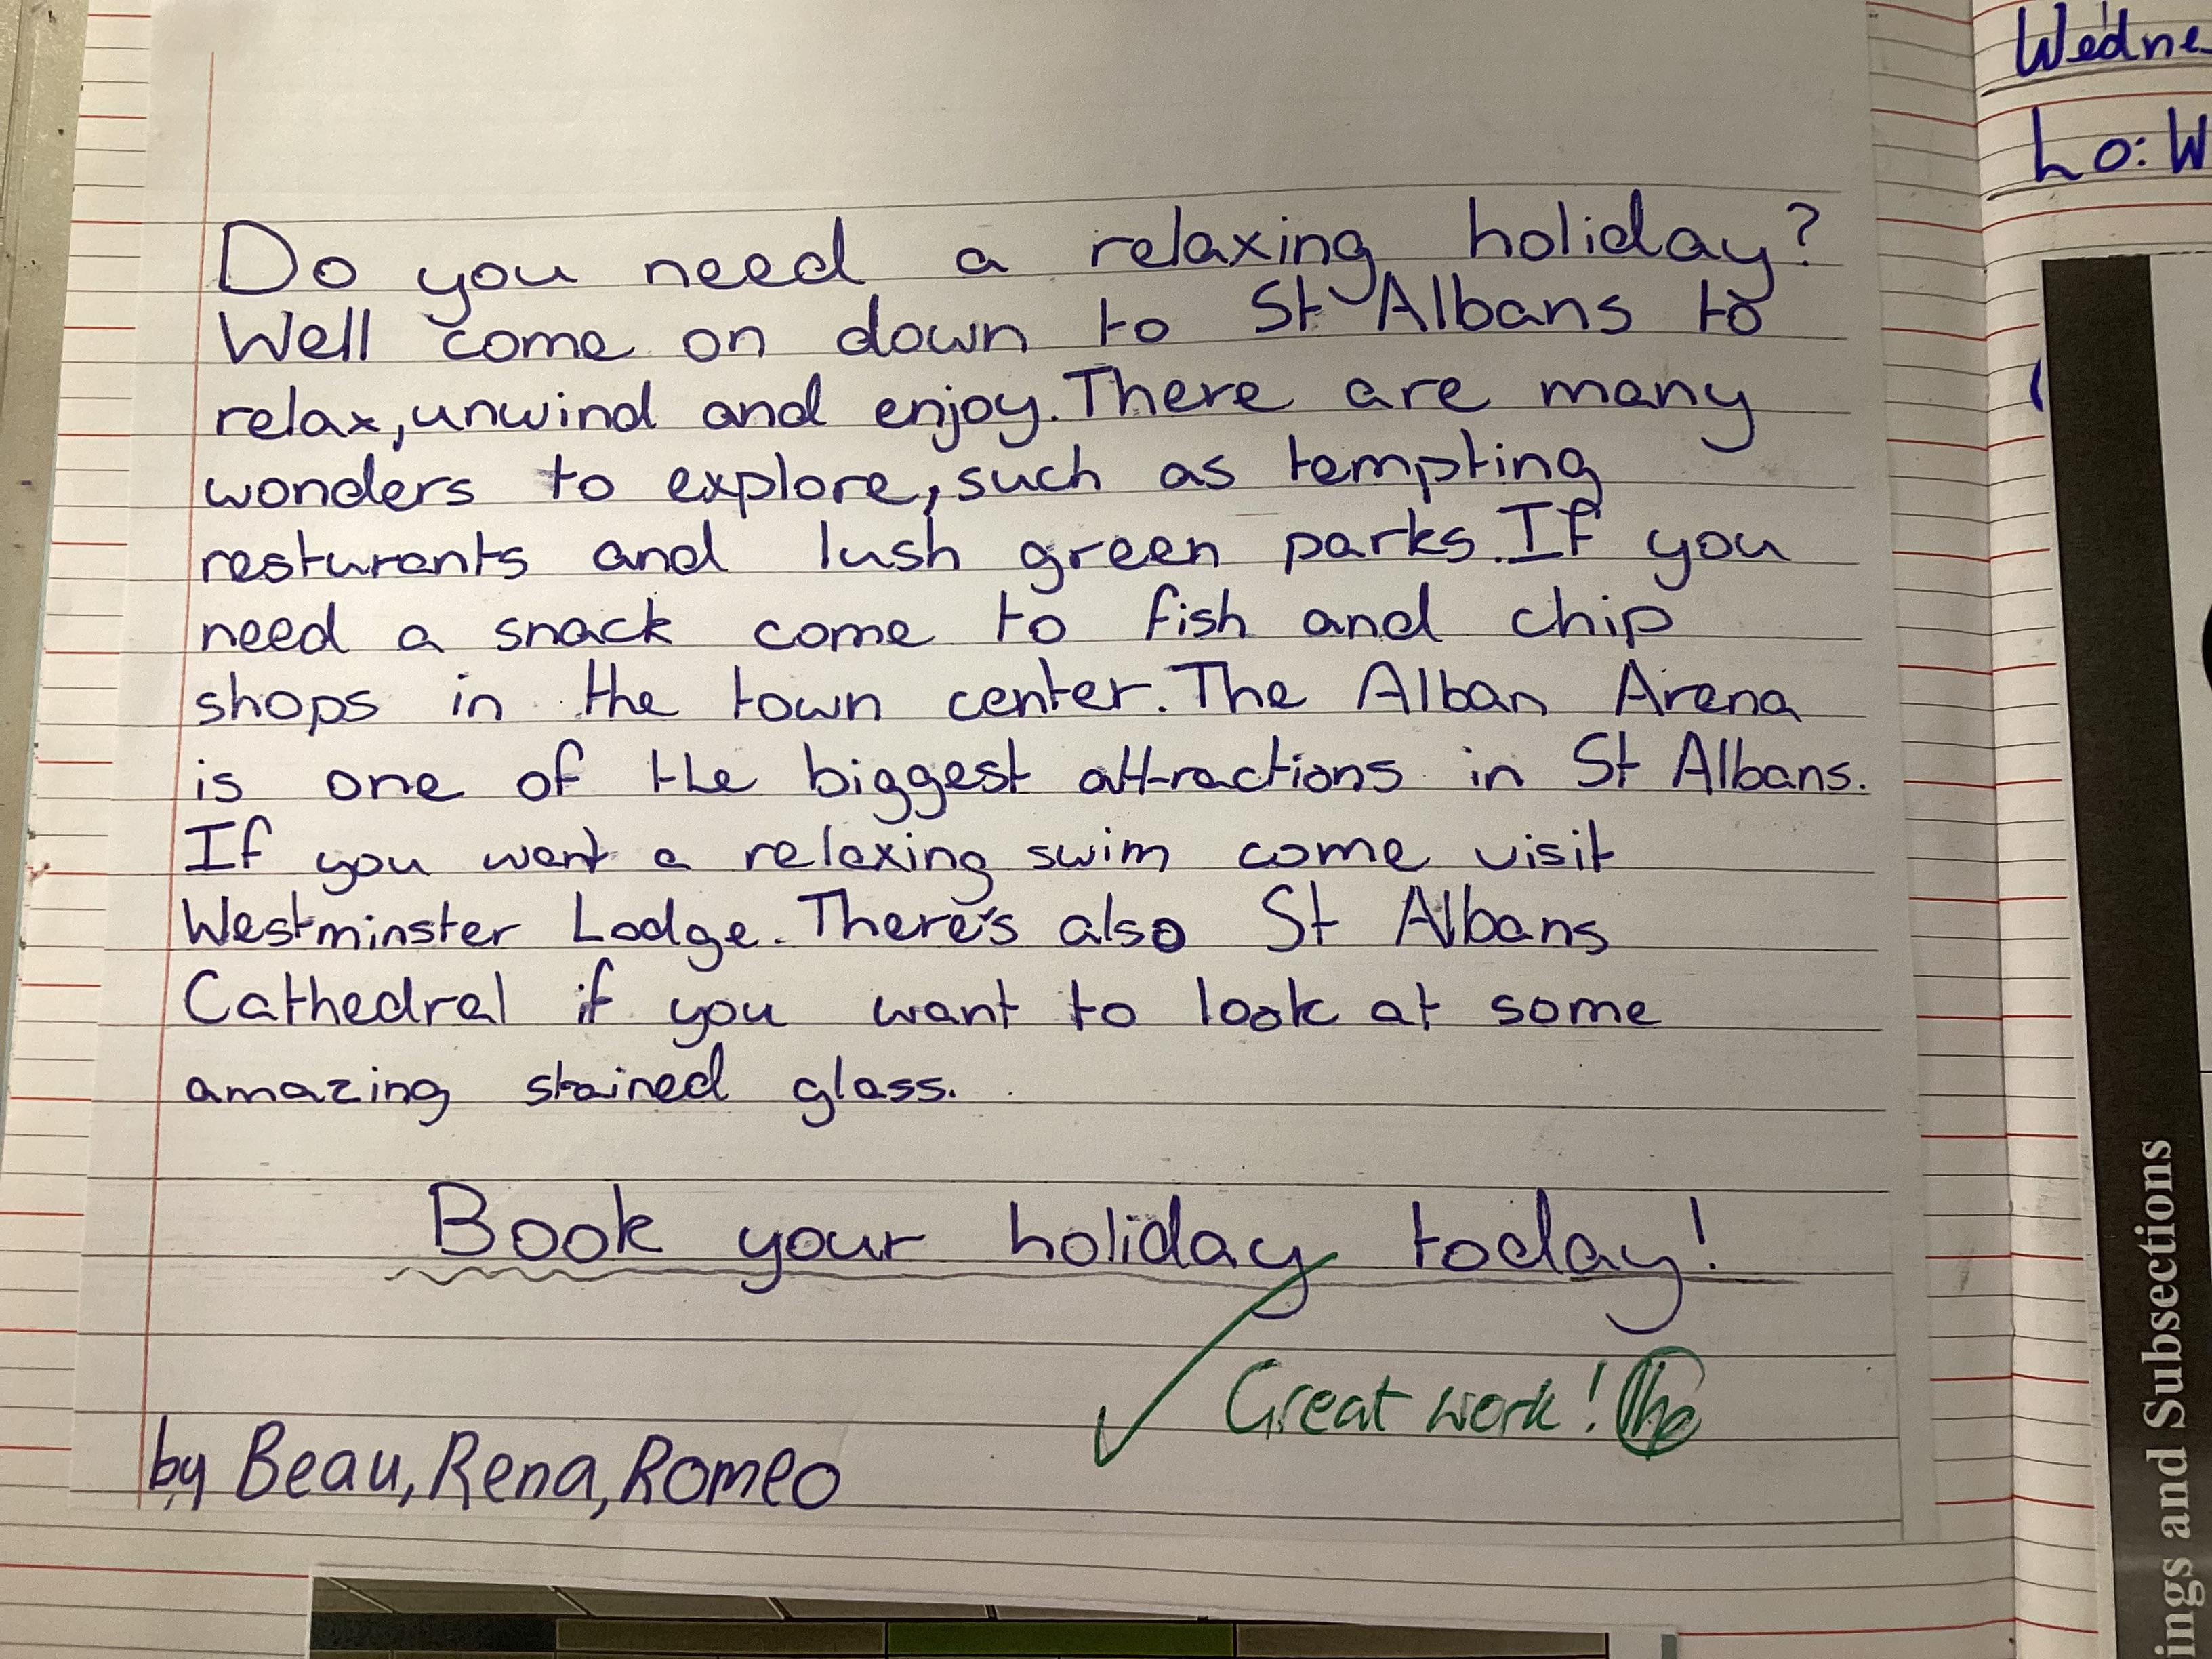 Do you need a relaxing holiday?
Well come on down to St Albans to
relax, unwind and enjoy. There are many
wonders to explore, such as tempting
resturants and lush green parks. If you
need a snack come to fish and chip
shops in the town center. The Alban Arena
is one of the biggest attractions in St Albans.
If you want a relaxing swim come visit
Westminster Lodge. There's also St Albans
Cathedral if you want to look at some
amazing stained glass.
Book your holiday today!
Great work!
by Beau, Rena, Romeo
Wedne
Lo: W
ings and Subsections